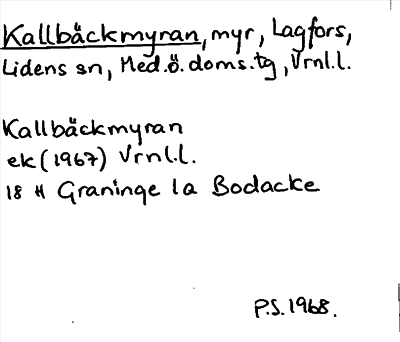 Kallbäckmyran, myr, Lagfors,
Lidens sn, Med.ö.doms.tg, Vrnl.l.
Kallbäckmyran
ek (1967) Vrnl.l.
18 H Graninge 1a Bodacke
P.S. 1968.